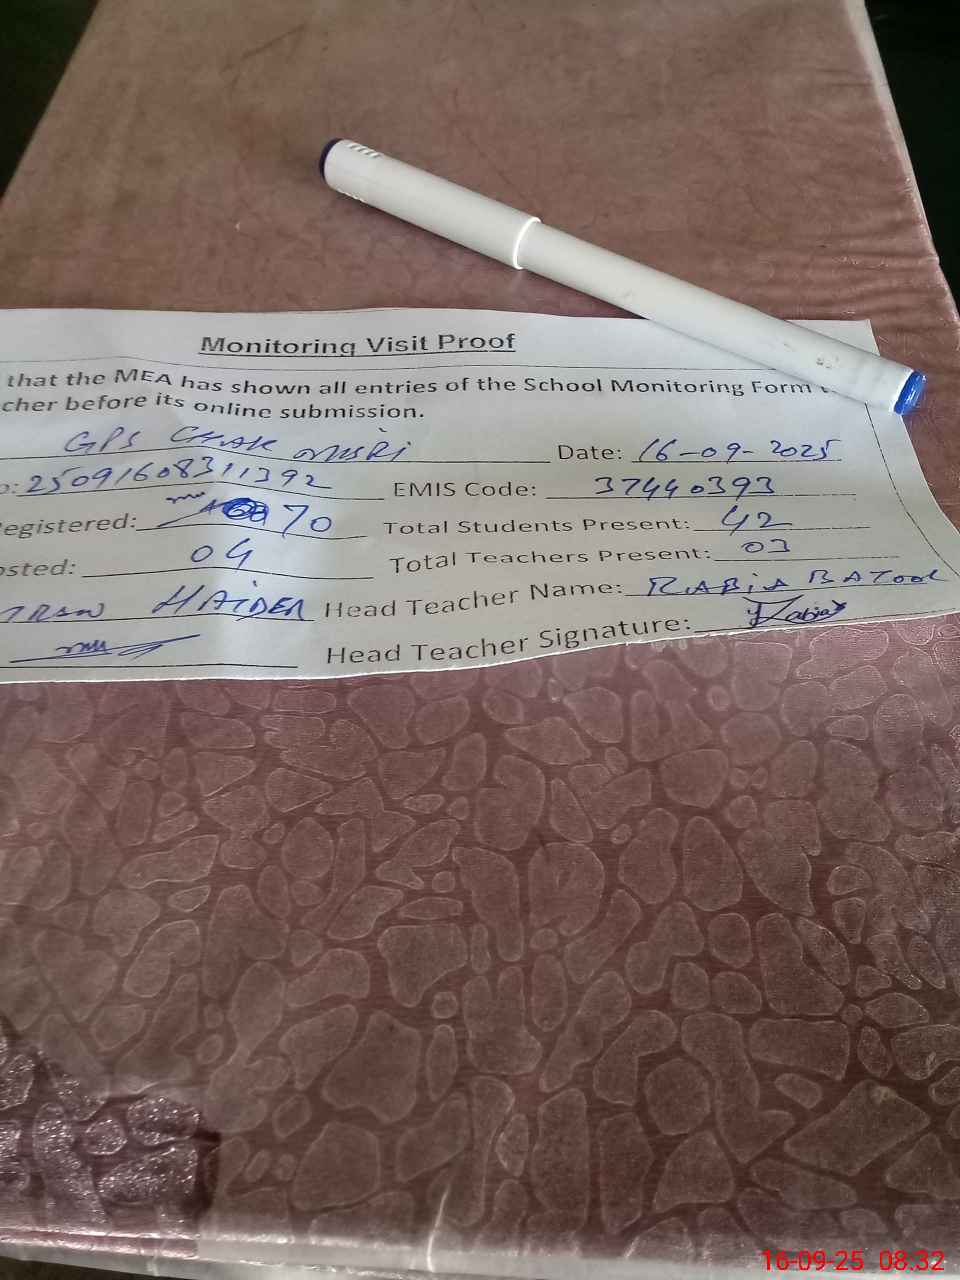 Monitoring Visit Proof
that the MEA has shown all entries of the School Monitoring Form
cher before its online submission.
GPS CHAK MISRI Date: 16-09-2025
o: 25091608311392 EMIS Code: 37440393
egistered: 70 Total Students Present: 42
osted: 04 Total Teachers Present: 03
TRAN HAIDER Head Teacher Name: RABIA BATOOL
Head Teacher Signature: Rabia
16-09-25 08.32